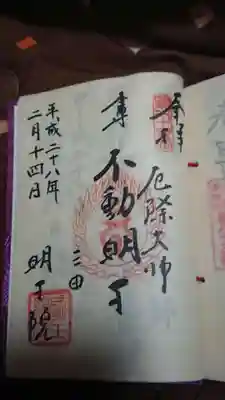 奉拝
厄除大師
尊 不動明王
三田
明王院
平成二十八年
二月十四日